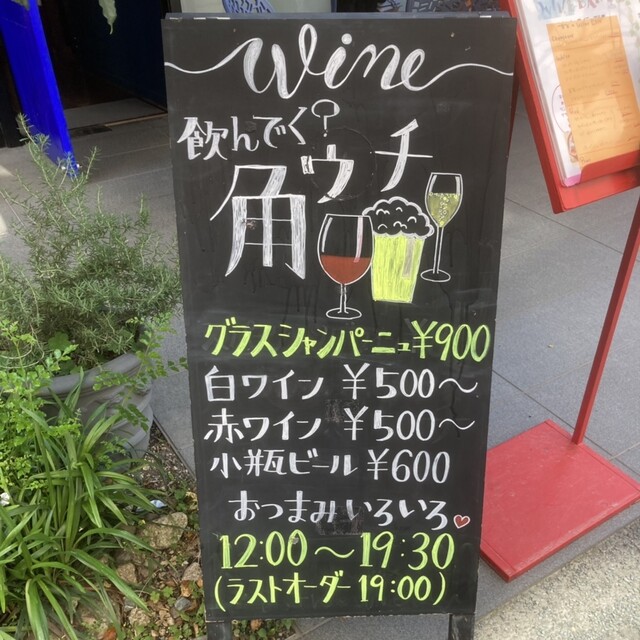 wine
飲んでく?
角ウチ
グラスシャンパーニュ¥900
白ワイン ¥500〜
赤ワイン ¥500〜
小瓶ビール ¥600
おつまみいろいろ♥
12:00〜19:30
(ラストオーダー 19:00)